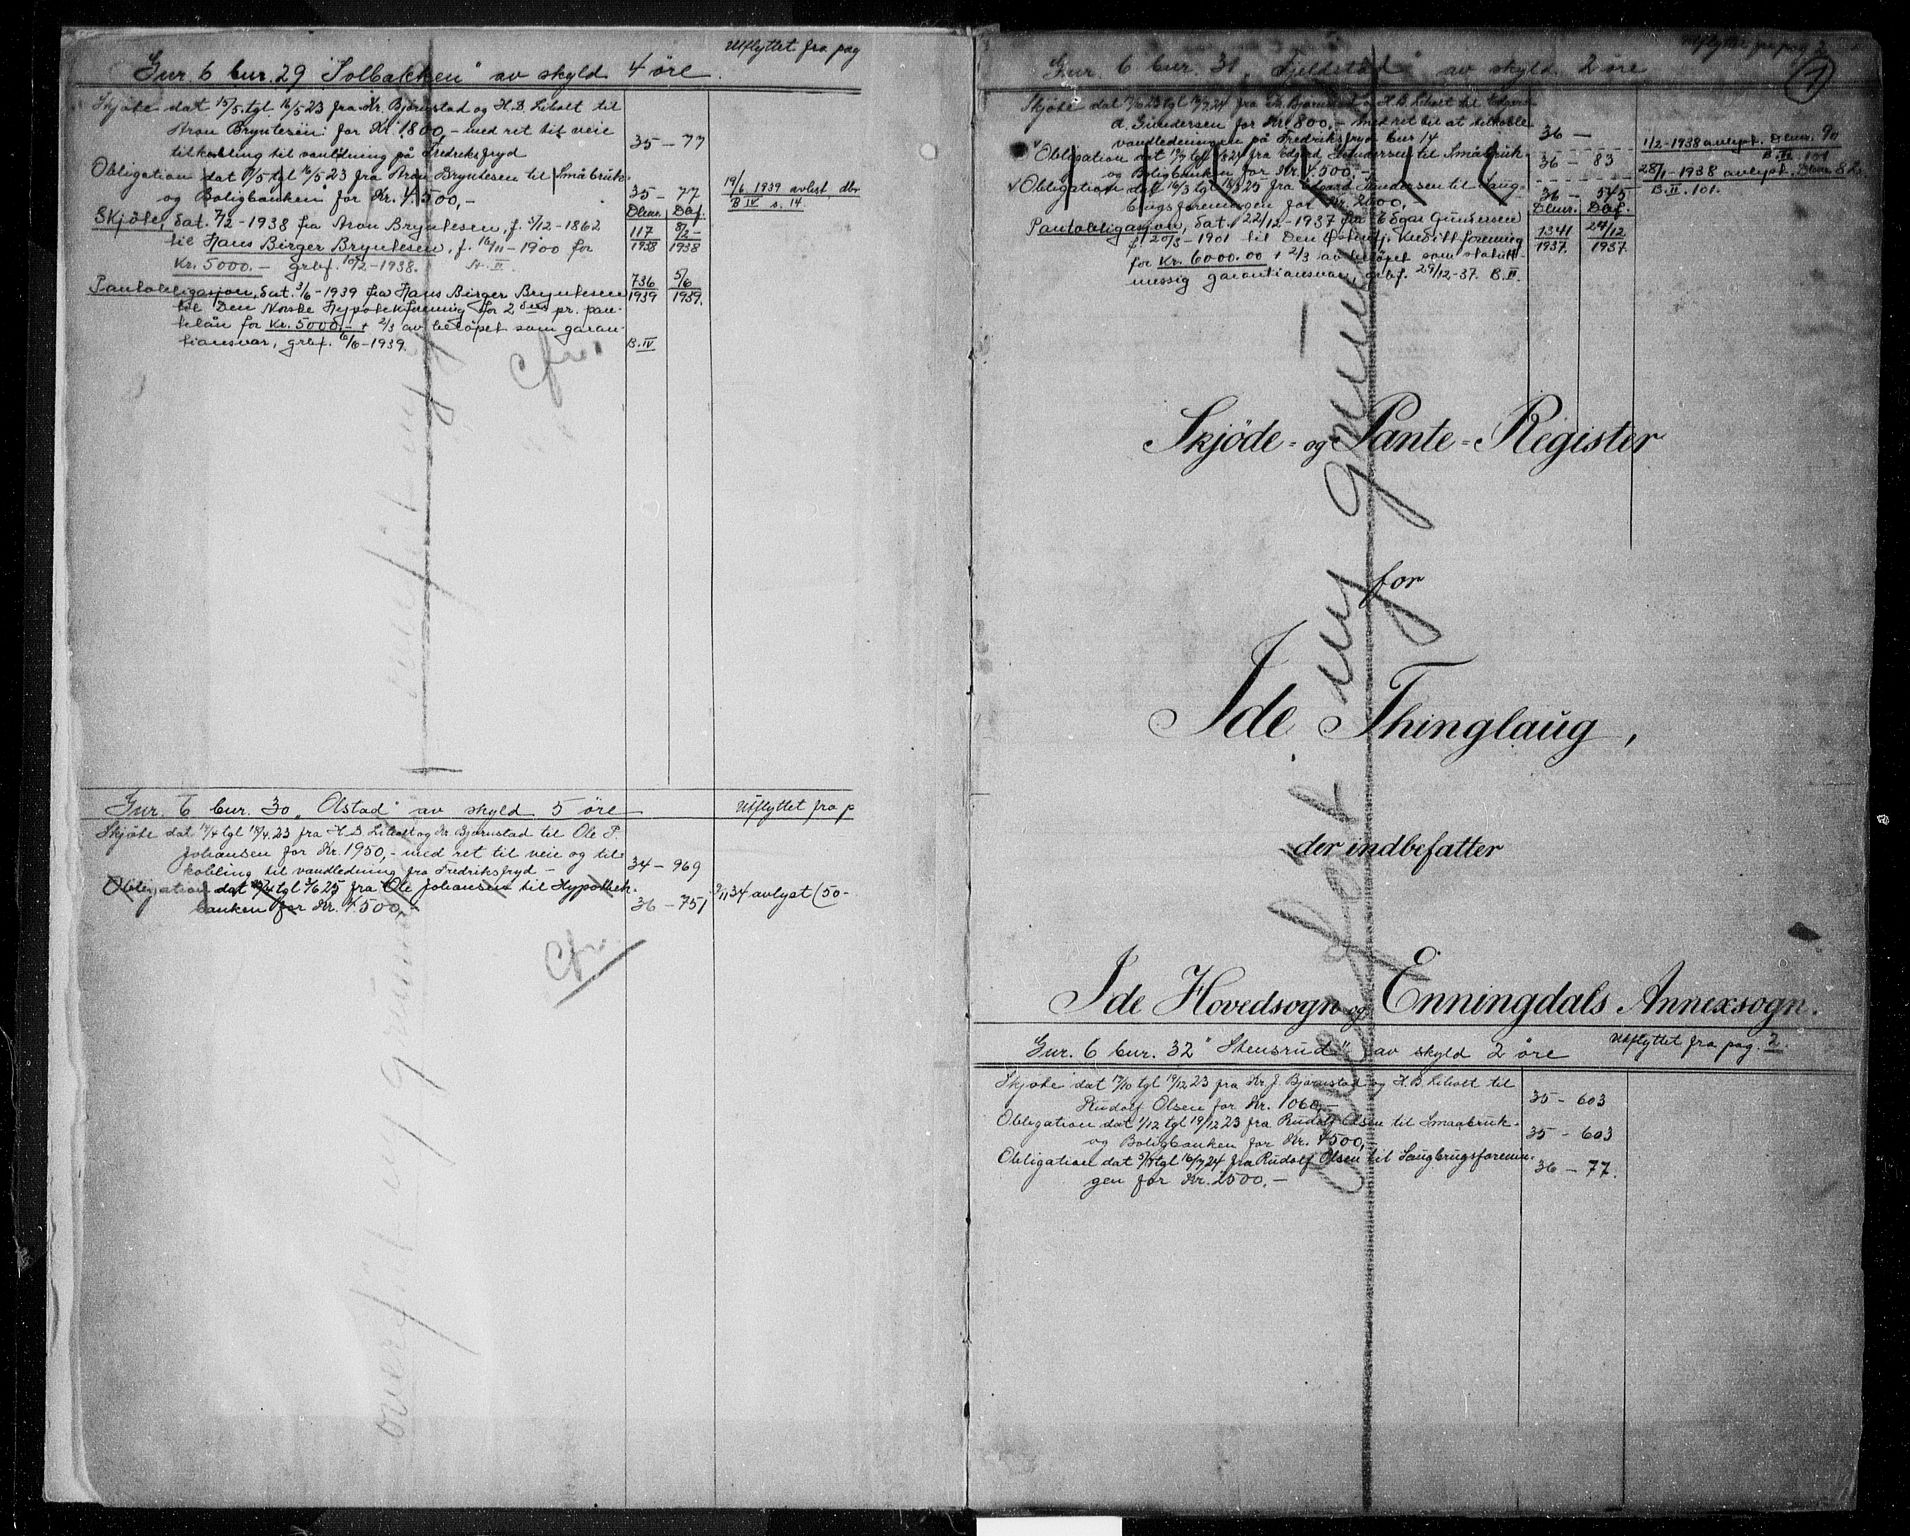 Utflyttet fra pag
Gnr. 6 bnr. 29 "Solbakken" av skyld 4 øre.
Skjöte dat 15/5 tgl 16/5 23 fra Kr. Bjørnstad og H.B. Liholt til
Aron Bryntesen for Kr. 1800,- med ret til veie
tilkobling til vanlednung på Fredriksfryd
35 - 77
Obligation dat 15/5 tgl 16/5 23 fra Aron Bryntesen til Småbruk-
og Boligbanken for Kr. 4500,-
35 - 77
19/6 1939 avlyst, dbr
B IV s. 14.
Dbnr. Daf.
Skjöte, dat. 7/2-1938 fra Aron Bryntesen, f. 5/12-1862
til Hans Birger Bryntesen, f. 16/11-1900 for
Kr. 5000.- grbf. 10/2-1938.
117 8/2
1938 1938
Pantobligasjon, dat. 3/6-1939 fra Hans Birger Bryntesen
til Den Norske Hypotekforening for 2 pr. pan-
telån for Kr. 5000,- + 2/3 av beløpet som garan-
tiansvar, grbf. 6/6-1939.
736 5/6
1939 1939.
B. IV
Cfr.
overført ny grunnbok
Gnr. 6 bnr. 30 "Olstad" av skyld 5 øre
Utflyttet fra p
Skjöte dat 17/4 tgl 18/4 23 fra H.B. Liholt og Kr. Bjørnstad til Ole P.
Johansen for Kr. 1950,- med ret til veie og til-
kobling til vandledning fra Fredriksfryd -
34 - 969
Obligation dat tgl 3/6 25 fra Ole Johansen til Hypothek-
banken for Kr. 4500,-
36 - 751
9/11 34 avlyst (50-
Cfr.
Utflyttet fra pag 2
1
Gnr. 6 bnr. 31 "Fjeldstad" av skyld 2 øre
Skjöte dat tgl fra Kr. Bjørnstad og H.B. Liholt til Edgar
Gundersen for Kr. 800,- med ret til at tilkoble
vandledningen på Fredriksfryd bnr 14
36 -
Obligation dat tgl fra Edgard Gundersen til Småbruk-
og Boligbanken for Kr. 4500,-
36 - 83
1/2-1938 avlyst. Dbnr. 90
B. II 101
Obligation dat 16/3 tgl 18/3 25 fra Edgard Gundersen til Saug-
brugsforeningen for Kr. 2000,
36 - 545
28/1-1938 avlyst, Dbnr 82
B. II. 101.
Dbnr. Daf.
Pantobligasjon, dat. 22/12-1937 fra Edgar Gundersen
f. 20/3-1901 til Den Østenfj. Kreditforening
for Kr. 6000.00 + 2/3 av beløpet som statutt-
messig garantiansvar, grbf. 29/12-37. B. II.
1341 24/12
1937. 1937.
Skjöde- og Pante-Register
for
Ide Thinglaug,
der indbefatter
Ide Hovedsogn og Enningdals Annexsogn.
Overført ny grunnbok
Gnr. 6 bnr. 32 "Stensrud" av skyld 2 øre
Utflyttet fra pag. 2.
Skjöte dat 17/10 tgl 19/12 23 fra Kr. J. Bjørnstad og H.B. Liholt til
Rudolf Olsen for Kr. 1060,-
35 - 603
Obligation dat 1/12 tgl 19/12 23 fra Rudolf Olsen til Smaabruk-
og Boligbanken for Kr. 4500,-
35 - 603
Obligation dat tgl 16/7 24 fra Rudolf Olsen til Saugbrugsforenin-
gen for Kr. 2500,-
36 - 77.